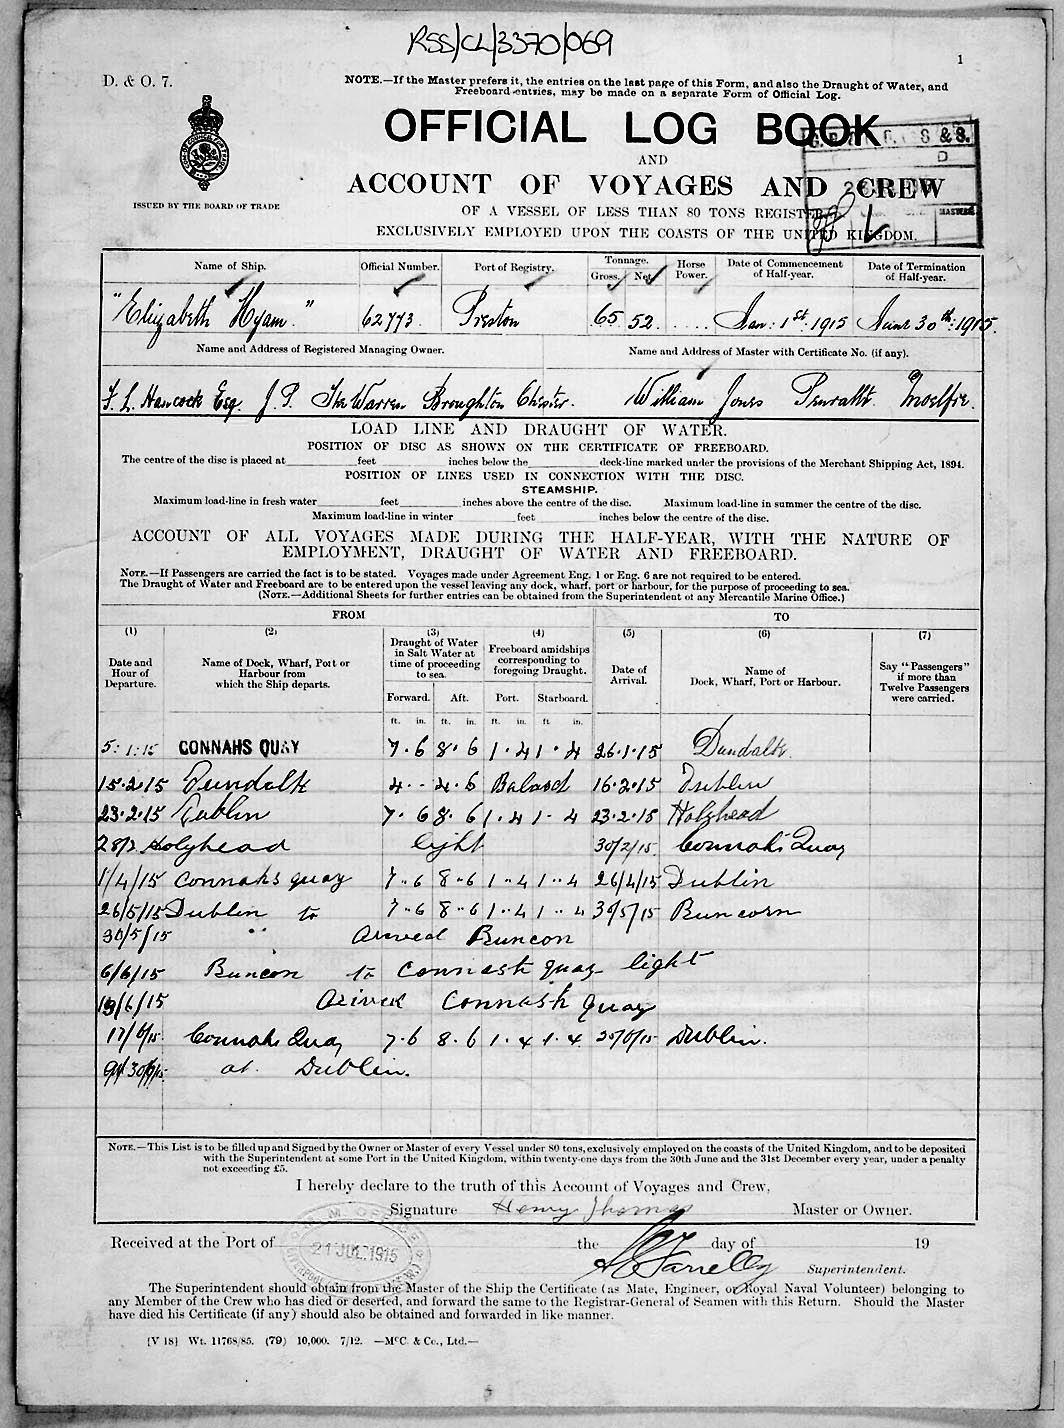 RSS/CL/3370/069
1
D. & O. 7.
NOTE.—If the Master prefers it, the entries on the last page of this Form, and also the Draught of Water, and
Freeboard entries, may be made on a separate Form of Official Log.
OFFICIAL LOG BOOK
AND
ACCOUNT OF VOYAGES AND CREW
ISSUED BY THE BOARD OF TRADE
OF A VESSEL OF LESS THAN 80 TONS REGISTER,
EXCLUSIVELY EMPLOYED UPON THE COASTS OF THE UNITED KINGDOM.
MASTERS
Name of Ship. Official Number. Port of Registry. Tonnage. Gross. Net. Horse Power. Date of Commencement of Half-year. Date of Termination of Half-year.
"Elizabeth Hyam" 62773 Preston 65 52 .... Jan: 1st: 1915 June 30th: 1915.
Name and Address of Registered Managing Owner. Name and Address of Master with Certificate No. (if any).
F. L. Hancock Esq. J. P. The Warren Broughton Chester. William Jones Penrallt Moelfre.
LOAD LINE AND DRAUGHT OF WATER.
POSITION OF DISC AS SHOWN ON THE CERTIFICATE OF FREEBOARD.
The centre of the disc is placed at feet inches below the deck-line marked under the provisions of the Merchant Shipping Act, 1894.
POSITION OF LINES USED IN CONNECTION WITH THE DISC.
STEAMSHIP.
Maximum load-line in fresh water feet inches above the centre of the disc. Maximum load-line in summer the centre of the disc.
Maximum load-line in winter feet inches below the centre of the disc.
ACCOUNT OF ALL VOYAGES MADE DURING THE HALF-YEAR, WITH THE NATURE OF
EMPLOYMENT, DRAUGHT OF WATER AND FREEBOARD.
NOTE.—If Passengers are carried the fact is to be stated. Voyages made under Agreement Eng. 1 or Eng. 6 are not required to be entered.
The Draught of Water and Freeboard are to be entered upon the vessel leaving any dock, wharf, port or harbour, for the purpose of proceeding to sea.
(NOTE.—Additional Sheets for further entries can be obtained from the Superintendent of any Mercantile Marine Office.)
FROM TO
(1) (2) (3) (4) (5) (6) (7)
Date and Hour of Departure. Name of Dock, Wharf, Port or Harbour from which the Ship departs. Draught of Water in Salt Water at time of proceeding to sea. Freeboard amidships corresponding to foregoing Draught. Date of Arrival. Name of Dock, Wharf, Port or Harbour. Say "Passengers" if more than Twelve Passengers were carried.
Forward. Aft. Port. Starboard.
ft. in. ft. in. ft. in. ft. in.
5:1:15 CONNAHS QUAY 7.6 8.6 1.4 1.4 26.1.15 Dundalk.
15.2.15 Dundalk 4.. 4.6 Balasd 16.2.15 Dublin
23.2.15 Dublin 7.6 8.6 1.4 1.4 23.2.15 Holyhead
28/2 Holyhead light 30/2/15 Connahs Quay
1/4/15 Connahs quay 7..6 8..6 1..4 1..4 26/4/15 Dublin
26/5/15 Dublin to 7..6 8..6 1..4 1..4 30/5/15 Runcorn
30/5/15 " Arived Runcon
6/6/15 Runcon to Connash quay light
10/6/15 Arived Connash quay
17/6/15 Connahs Quay 7.6 8.6 1.4 1.4 Dublin.
at Dublin.
NOTE.—This List is to be filled up and Signed by the Owner or Master of every Vessel under 80 tons, exclusively employed on the coasts of the United Kingdom, and to be deposited
with the Superintendent at some Port in the United Kingdom, within twenty-one days from the 30th June and the 31st December every year, under a penalty
not exceeding £5.
I hereby declare to the truth of this Account of Voyages and Crew,
Signature Henry Thomas Master or Owner.
Received at the Port of the day of 19
21 JUL 1915
Superintendent.
The Superintendent should obtain from the Master of the Ship the Certificate (as Mate, Engineer, or Royal Naval Volunteer) belonging to
any Member of the Crew who has died or deserted, and forward the same to the Registrar-General of Seamen with this Return. Should the Master
have died his Certificate (if any) should also be obtained and forwarded in like manner.
[V 18] Wt. 11768/85. (79) 10,000. 7/12. —McC. & Co., Ltd.—